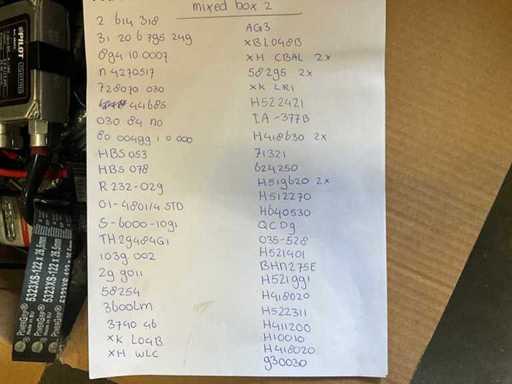 mixed box 2
2 614 318
31 20 6 795 249
894 10 0007
n 4270517
728070 030
44685
030 84 no
80 00499 1 0 000
HBS 053
HBS 078
R 232-029
01-4801/4 STD
S-6000-1091
TH29484G1
1039 002
29 9011
58254
3600Lm
3740 46
XK L04B
XH WLC
AG3
XBL048B
XH CBAL 2x
58295 2x
XK LR1
H522421
IA-377B
H418630 2x
71321
624250
H519620 2x
H512270
H640530
QCD9
035-528
H521401
BHN275E
H521991
H418020
H522311
H411200
H10010
H418020
930030
PILOT
PowerGrip
5323XS-122 x 26.5mm
PowerGrip
5323XS-122 x 26.5mm